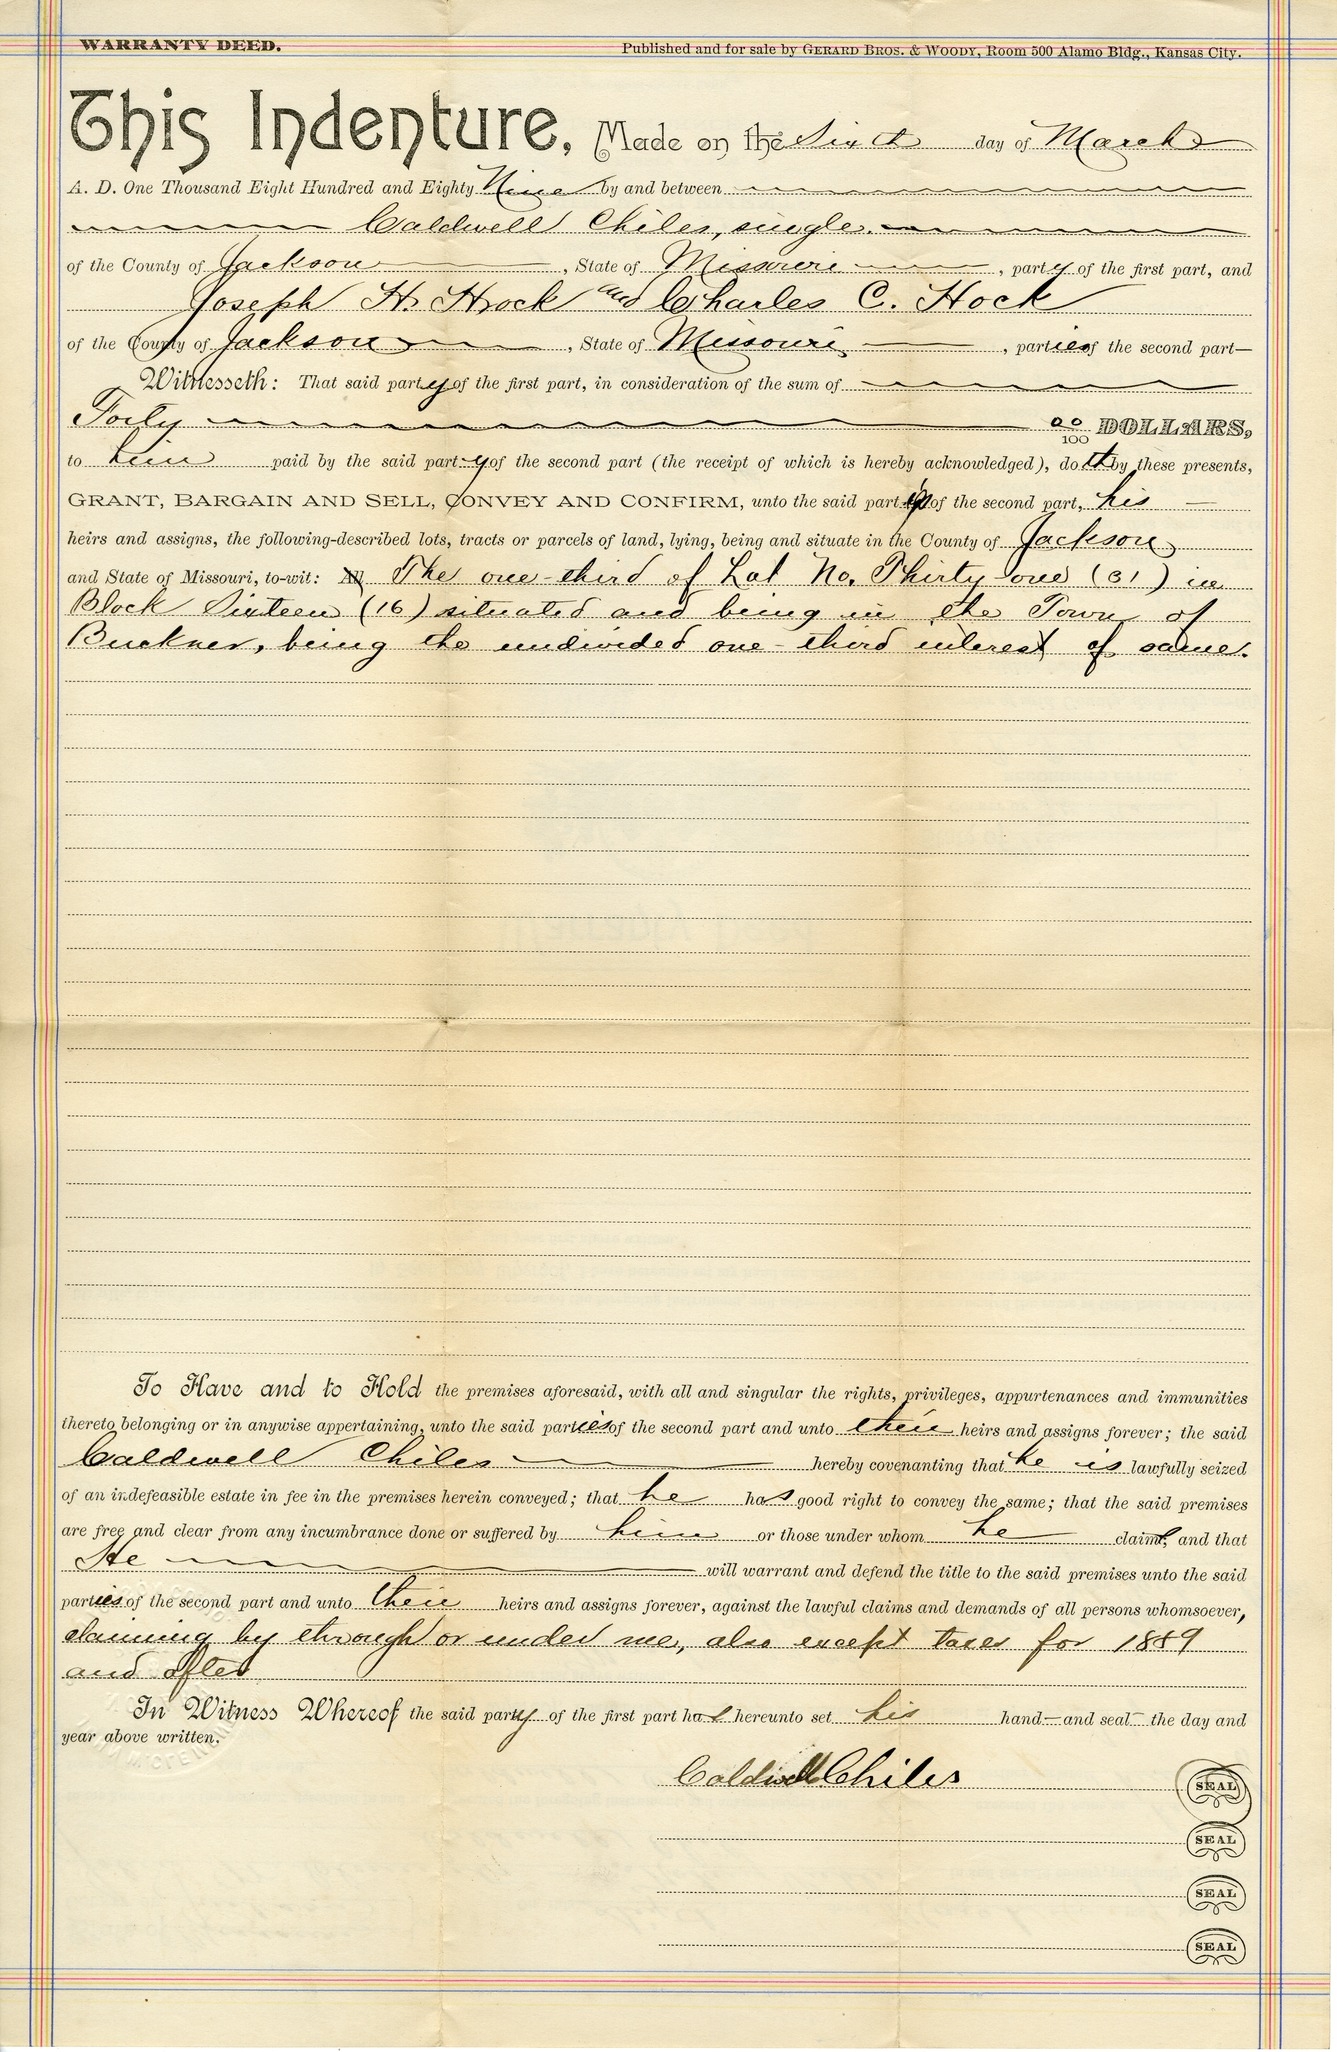 WARRANTY DEED.
Published and for sale by GERARD BROS. & WOODY, Room 500 Alamo Bldg., Kansas City.
This Indenture, Made on the Sixth day of March
A. D. One Thousand Eight Hundred and Eighty Nine by and between
Caldwell Chiles, single.
of the County of Jackson, State of Missouri, party of the first part, and
Joseph H. Hock and Charles C. Hock
of the County of Jackson, State of Missouri, parties of the second part—
Witnesseth: That said party of the first part, in consideration of the sum of
Forty 00/100 DOLLARS,
to him paid by the said party of the second part (the receipt of which is hereby acknowledged), doth by these presents,
GRANT, BARGAIN AND SELL, CONVEY AND CONFIRM, unto the said part of the second part, his
heirs and assigns, the following-described lots, tracts or parcels of land, lying, being and situate in the County of Jackson
and State of Missouri, to-wit: All The one-third of Lot No. Thirty one (31) in
Block Sixteen (16) situated and being in the Town of
Buckner, being the undivided one-third interest of same.
To Have and to Hold the premises aforesaid, with all and singular the rights, privileges, appurtenances and immunities
thereto belonging or in anywise appertaining, unto the said parties of the second part and unto their heirs and assigns forever; the said
Caldwell Chiles hereby covenanting that he is lawfully seized
of an indefeasible estate in fee in the premises herein conveyed; that he has good right to convey the same; that the said premises
are free and clear from any incumbrance done or suffered by him or those under whom he claims, and that
He will warrant and defend the title to the said premises unto the said
parties of the second part and unto their heirs and assigns forever, against the lawful claims and demands of all persons whomsoever,
claiming by through or under me, also except taxes for 1889
and after
In Witness Whereof the said party of the first part has hereunto set his hand—and seal—the day and
year above written.
Caldwell Chiles SEAL
SEAL
SEAL
SEAL